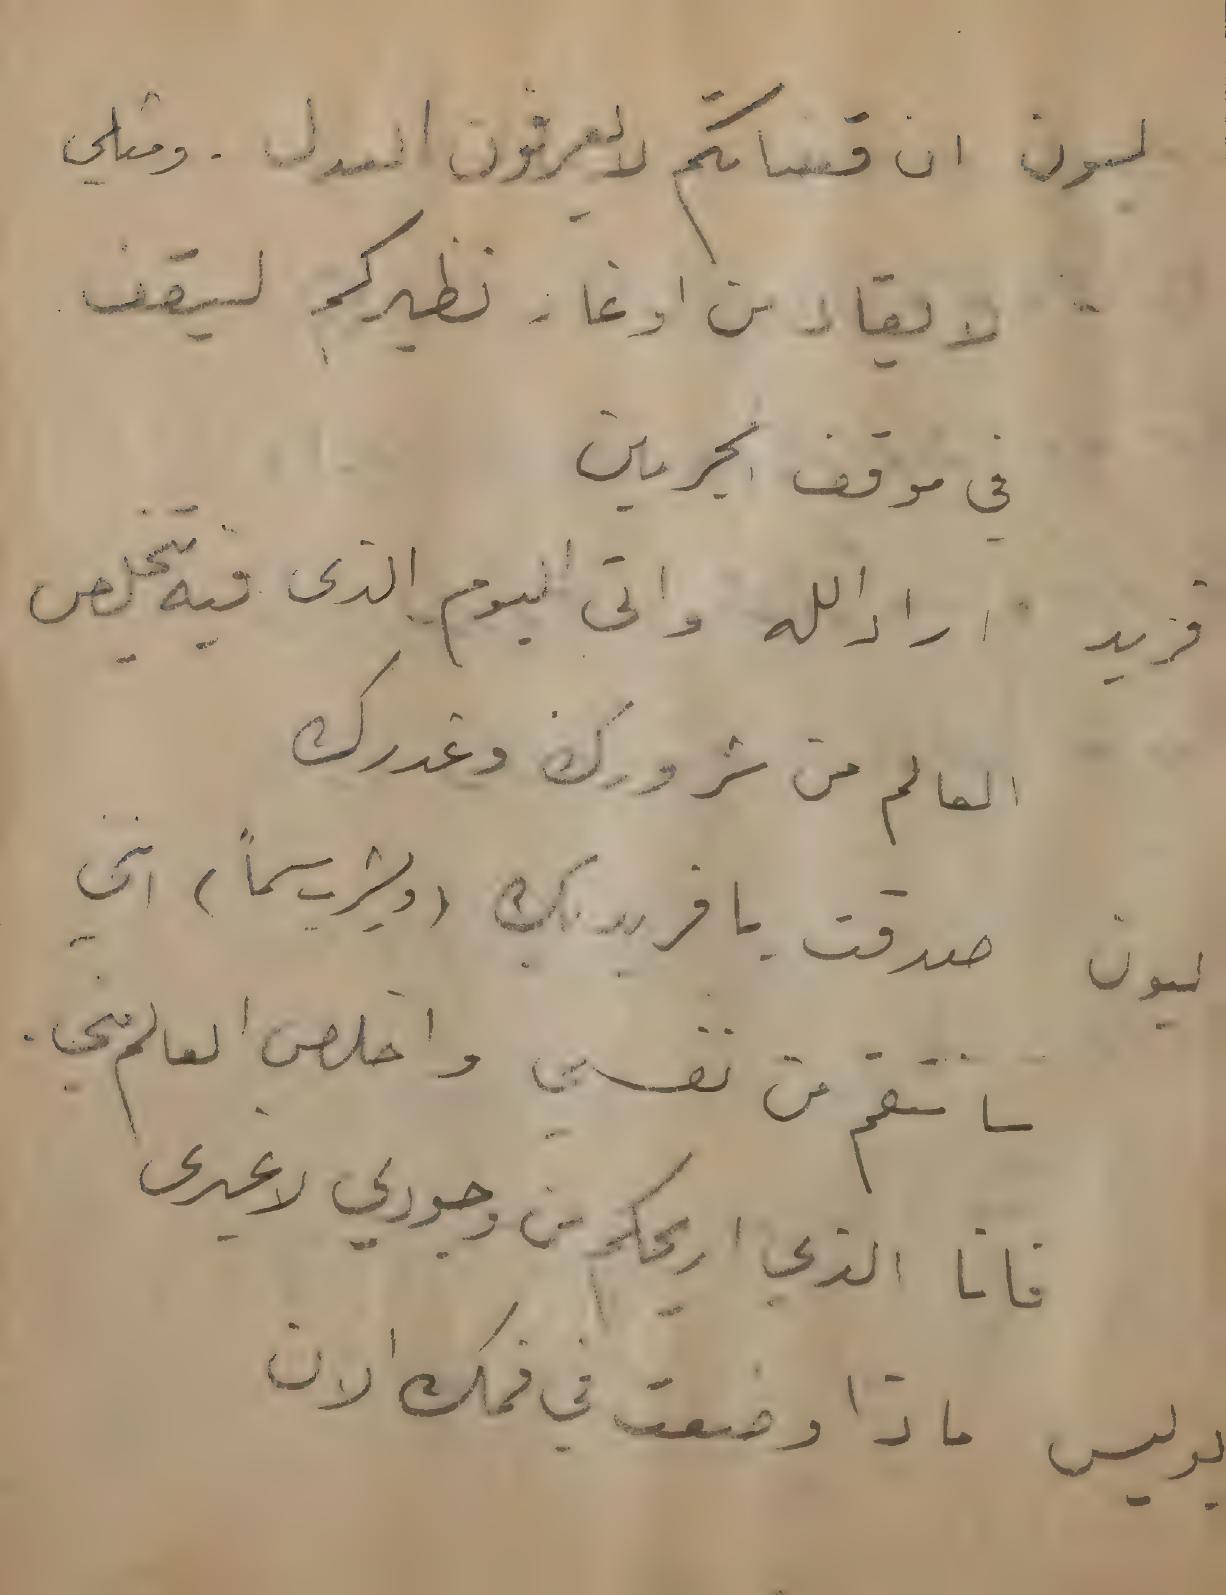 ليون ان قضاتكم لا يعرفون العدل . ومثلي
لا يقاد من اوغاد نظيركم ليقف
في موقف المجرمين
فريد اراد الله واتى اليوم الذى فيه تخلص
العالم من شرورك وغدرك
ليون صدقت يا فريد بك (ويشرب سماً) انني
سانتقم من نفسي واخلص العالم مني .
فانا الذي اريحكم من وجودي لا غيرى
بوليس ماذا وضعت في فمك الان